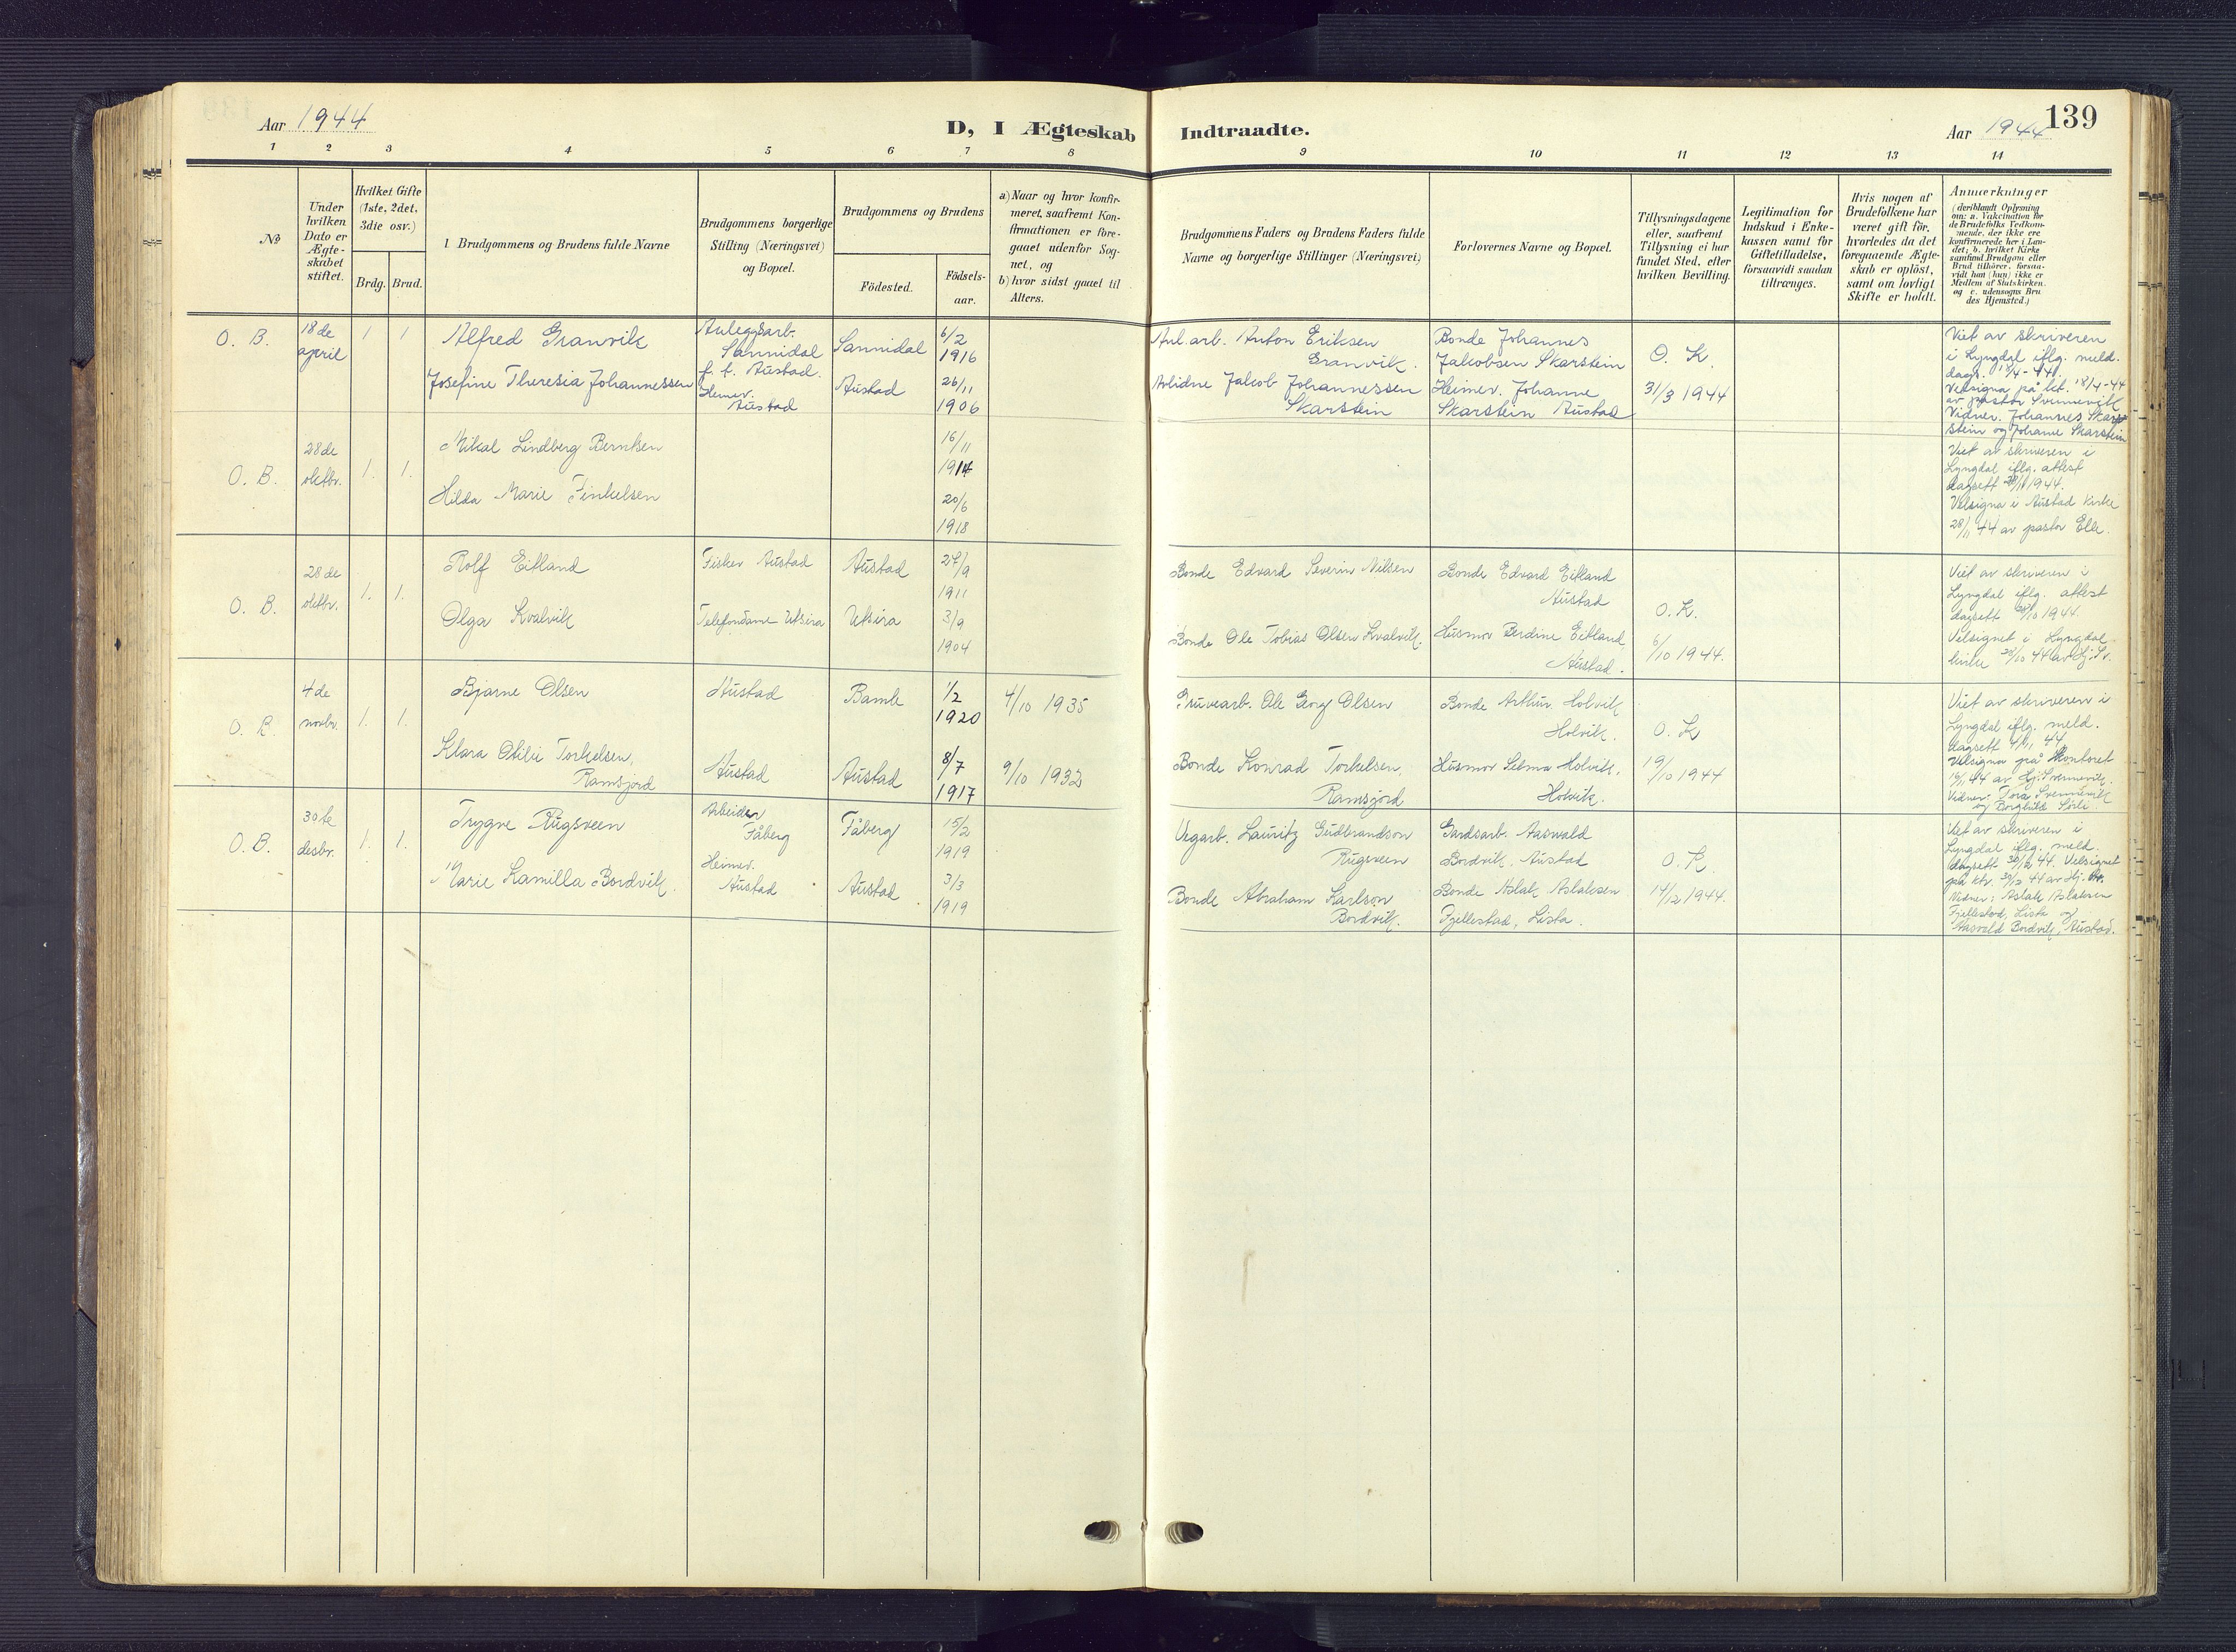 Aar 1944
D, I Ægteskab Indtraadte.
Aar 1944
139
1 2 3 4 5 6 7 8 9 10 11 12 13 14
No
Under
hvilken
Dato er
Ægte-
skabet
stiftet.
Hvilket Gifte
(1ste, 2det,
3die osv.)
Brdg. Brud.
1. Brudgommens og Brudens fulde Navne
Brudgommens borgerlige
Stilling (Næringsvei)
og Bopæl.
Brudgommens og Brudens
Födested.
Födsels-
aar.
a) Naar og hvor konfir-
meret, saafremt Kon-
firmationen er fore-
gaaet udenfor Sog-
net, og
b) hvor sidst gaaet til
Alters.
Brudgommens Faders og Brudens Faders fulde
Navne og borgerlige Stillinger (Næringsvei)
Forlovernes Navne og Bopæl.
Tillysningsdagene
eller, saafremt
Tillysning ei har
fundet Sted, efter
hvilken Bevilling.
Legitimation for
Indskud i Enke-
kassen samt for
Giftetilladelse,
forsaavidt saadan
tiltrænges.
Hvis nogen af
Brudefolkene har
været gift før,
hvorledes da det
foregaaende Ægte-
skab er oplöst,
samt om lovligt
Skifte er holdt.
Anmærkninger
(deriblandt Oplysning
om: a. Vakcination for
de Brudefolks Vedkom-
mende, der ikke ere
konfirmerede her i Lan-
det; b. hvilket Kirke
samfund Brudgom eller
Brud tilhörer, forsaa-
vidt han (hun) ikke er
Medlem af Statskirken,
og c. udensogns Bru
des Hjemsted.)
O. B.
18de
april
1 1
Alfred Granvik
Josefine Theresia Johannessen
Anleggsarb.
Sannidal
f. t. Austad.
Heimev.
Austad
Sannidal
Austad
6/2
1916
26/11
1906
Anl.arb. Anton Eriksen
Granvik.
Avlidne Jakob Johannessen
Skarstein
Bonde Johannes
Jakobsen Skarstein
Heimev. Johanne
Skarstein Austad
O. K.
31/3 1944
Viet av skriveren
i Lyngdal iflg. meld.
dags. 18/4-44.
Velsigna på 18/4-44
av pastor Svennevik
Vidner. Johannes Skar-
stein og Johanne Skarstein
O. B.
28de
oktbr.
1. 1.
Mikal Lindberg Berntsen
Hilda Marie Finkelsen
16/11
1914
20/6
1918
Viet av skriveren i
Lyngdal iflg. attest
dagsett 28/11 1944.
Velsigna i Austad kirke
28/11 44 av pastor
O. B.
28de
oktbr.
1. 1.
Rolf Eitland
Olga Kvalvik
Fisker Austad
Telefondame Utsira
Austad
Utsira
27/9
1911
3/9
1904
Bonde Edvard Severin Nilsen
Bonde Ole Tobias Olsen Kvalvik.
Bonde Edvard Eitland
Austad
Husmor Berdine Eitland
Austad.
O. K.
6/10 1944.
Viet av skriveren i
Lyngdal iflg. attest
dagsett 28/10 1944.
Velsignet i Lyngdal
kirke 28/10 44 av Hj. Sv.
O. B.
4de
novbr.
1. 1.
Bjarne Olsen
Klara Otilie Torkelsen,
Ramsjord
Austad
Austad
Bamle
Austad
1/2
1920
8/7
1917
4/10 1935
9/10 1932
Gruvearb. Ole Georg Olsen
Bonde Konrad Torkelsen,
Ramsjord
Bonde Arthur Holvik
Holvik.
Husmor Selma Holvik,
Holvik.
O. K
19/10 1944
Viet av skriveren i
Lyngdal iflg. meld.
dagsett 4/11 44.
Velsigna på kontoret
av Hj. Svennevik.
Vidner: Tora Svennevik
og Borghild
O. B.
30te
desbr.
1. 1.
Trygve Rugsveen
Marie Kamilla Bordvik.
Arbeider
Fåberg
Heimev.
Austad
Fåberg
Austad
15/2
1919
3/3
1919
Vegarb. Lauritz Gudbrandson
Rugsveen
Bonde Abraham Karlson
Bordvik.
Gardsarb. Aaswald
Bordvik, Austad
Bonde Aslak Aslaksen
Fjellestad, Lista.
O. K.
14/12 1944.
Viet av skriveren i
Lyngdal iflg. meld.
dagsett 30/12 44. Velsignet
på ktr. 30/12 44 av Hj. Sv.
Vidner: Aslak Aslaksen
Fjellestad, Lista og
Aasvald Bordvik, Austad.